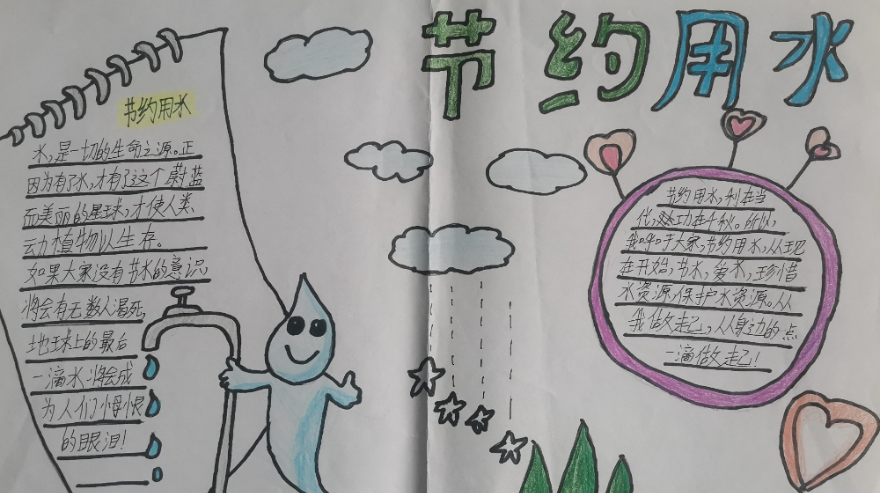 节约用水
节约用水
水,是一切的生命之源。正
因为有了水,才有了这个蔚蓝
而美丽的星球,才使人类、
动植物以生存。
如果大家没有节水的意识,
将会有无数人渴死,
地球上的最后
一滴水将会成
为人们悔恨
的眼泪!
节约用水,利在当
代,功在千秋。所以,
我呼于大家,节约用水,从现
在开始,节水,爱水,珍惜
水资源,保护水资源。从
我做起,从身边的点
一滴做起!